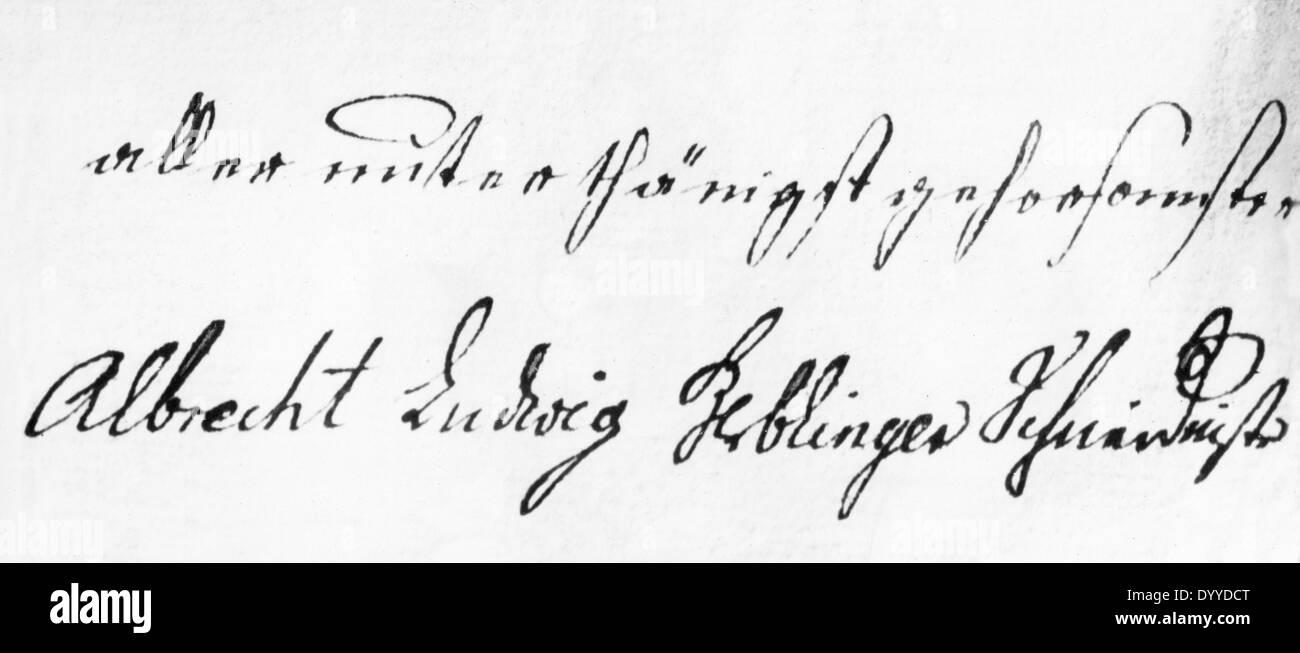 aller unterthänigst gehorsamster
Albrecht Ludwig Berblinger Schneidmstr
alamy
Image ID: DYYDCT
www.alamy.com